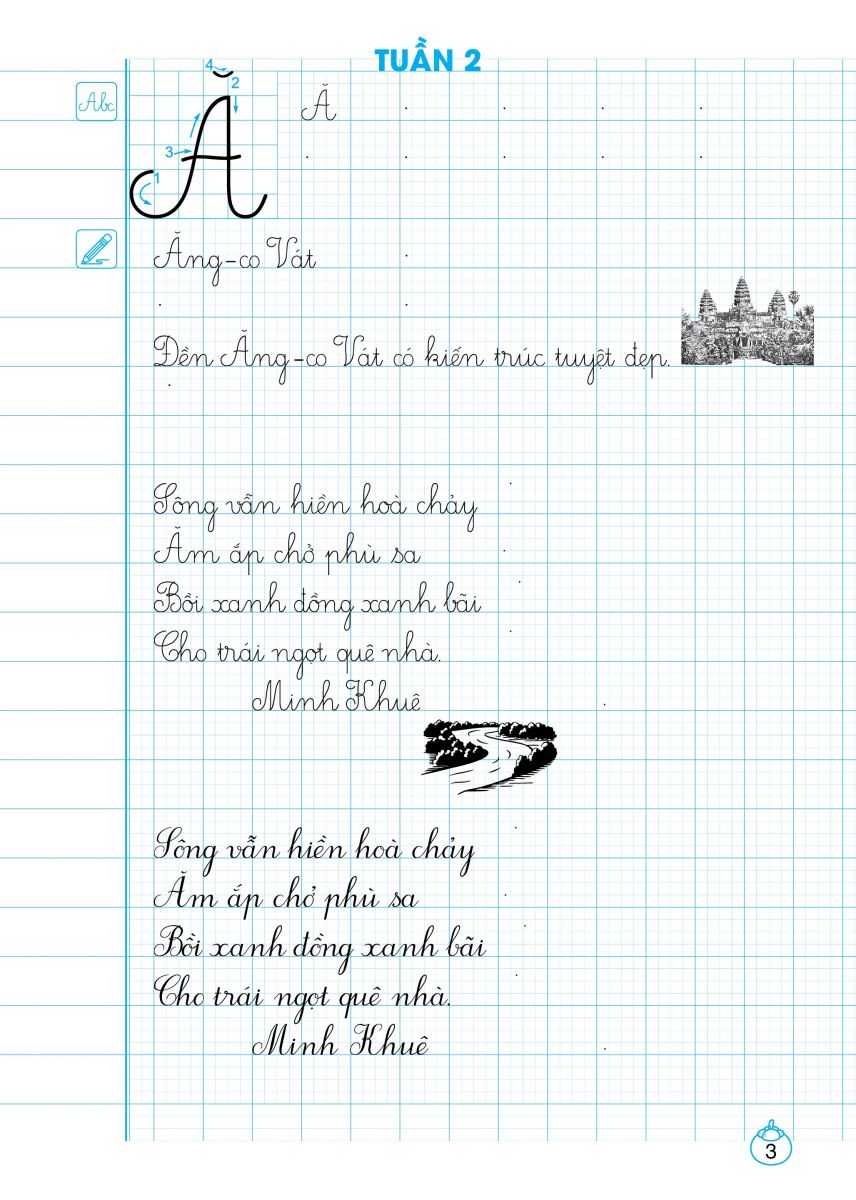 TUẦN 2
Abc
4
2
3
1
Ă
Ă
Ăng-co Vát
Đền Ăng-co Vát có kiến trúc tuyệt đẹp.
Sông vẫn hiền hoà chảy
Ăm ắp chở phù sa
Bồi xanh đồng xanh bãi
Cho trái ngọt quê nhà.
Minh Khuê
Sông vẫn hiền hoà chảy
Ăm ắp chở phù sa
Bồi xanh đồng xanh bãi
Cho trái ngọt quê nhà.
Minh Khuê
3